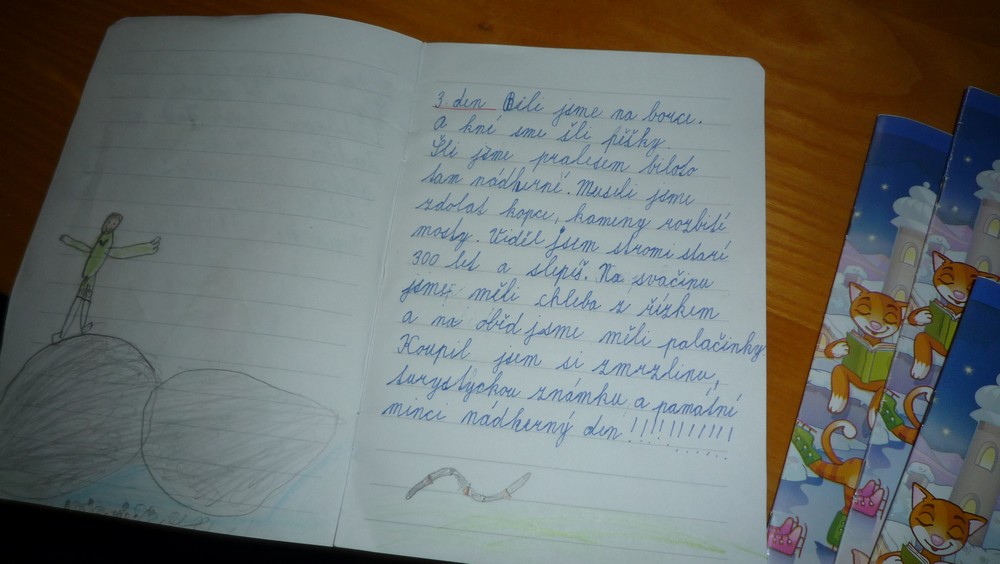 3. den Bili jsme na borce.
a kní sme šli pěšky.
Šli jsme pralesem biloto
tam nádherné. Museli jsme
zdolat kopce, kameny rozbité
mosty. Viděl jsem stromi staré
300 let a slepíš. Na svačinu
jsme měli chleba z řízkem
a na oběd jsme měli palačinky
Koupil jsem si zmrzlinu,
turystyckou známku a památní
minci nádherný den!!!!!!!!!!!